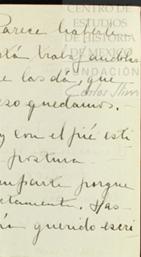 CENTRO DE
ESTUDIOS
DE HISTORIA
DE MEXICO
FUNDACIÓN
Carlos Slim
Parece hablar
e las dá, que
eso quedamos.
y con el pié esti
postura
mparte porque
ctamente. Has
querido escri